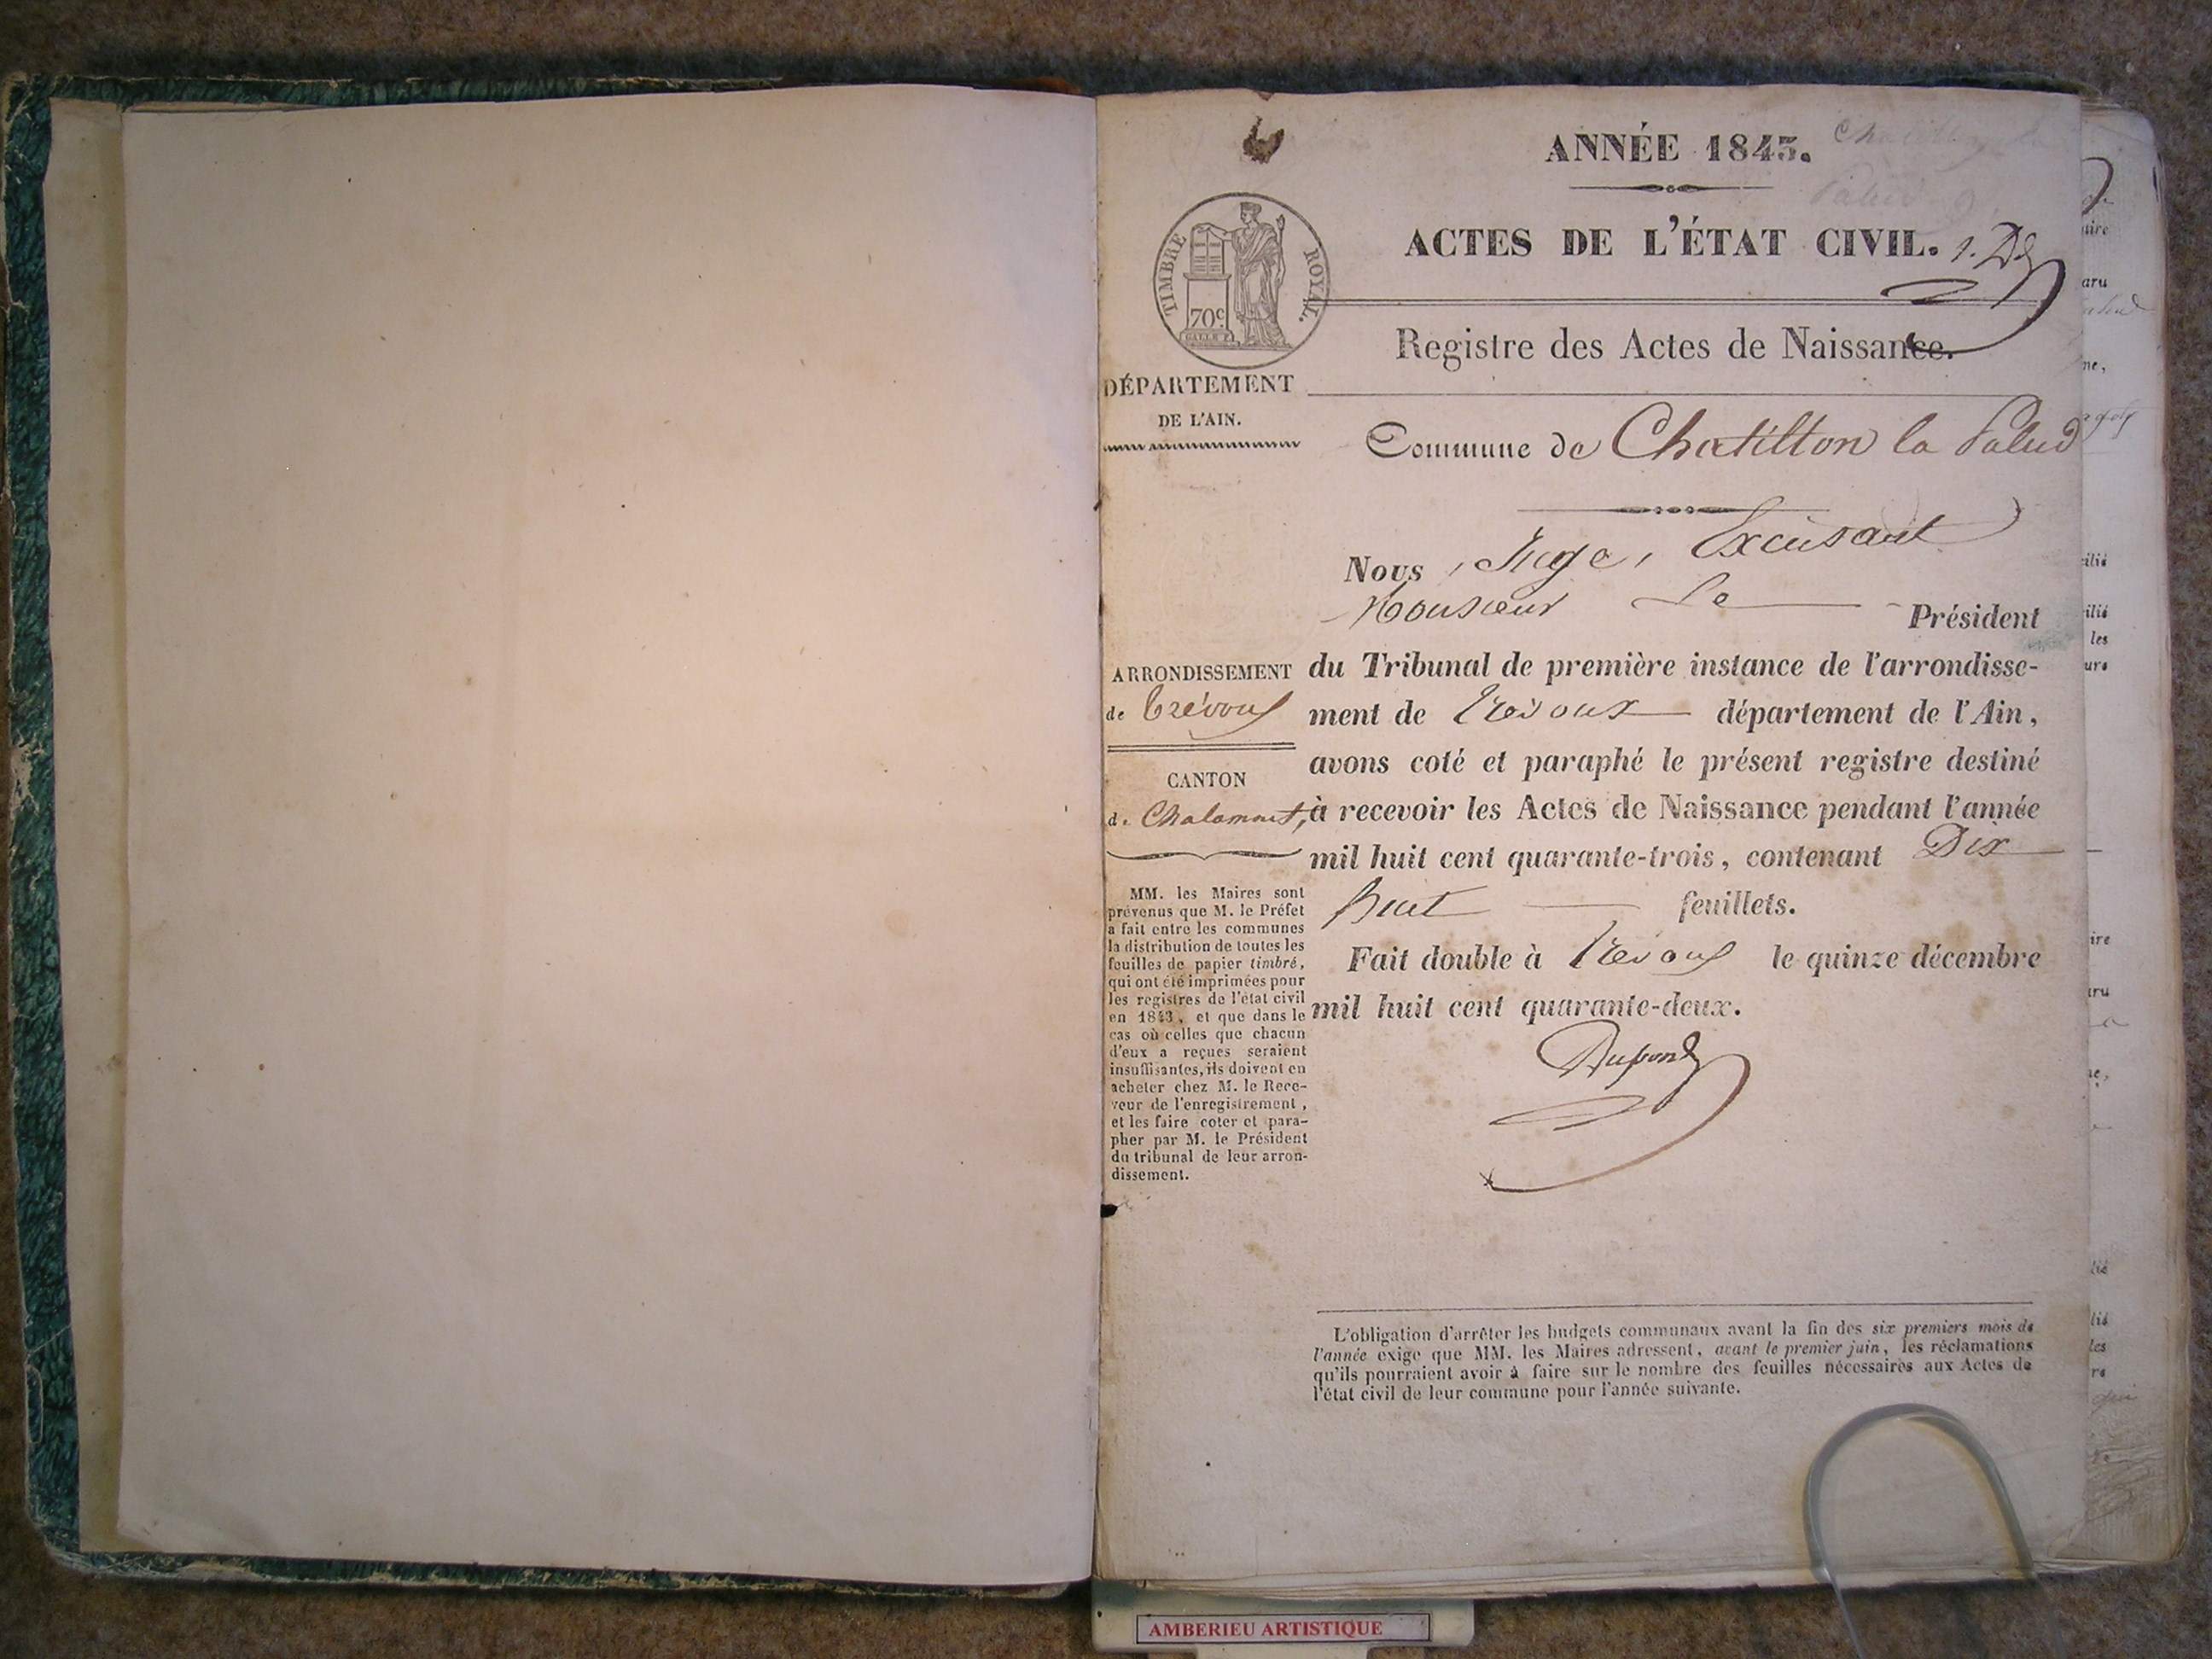 ANNÉE 1843.
ACTES DE L'ÉTAT CIVIL. 1.
TIMBRE ROYAL.
70c
Registre des Actes de Naissance.
DÉPARTEMENT
DE L'AIN.
Commune de Chatillon la Palud
Nous, Juge, Excusant
Monsieur Le Président
du Tribunal de première instance de l'arrondisse-
ment de Trévoux département de l'Ain,
avons coté et paraphé le présent registre destiné
à recevoir les Actes de Naissance pendant l'année
mil huit cent quarante-trois, contenant Dix
huit feuillets.
Fait double à Trévoux le quinze décembre
mil huit cent quarante-deux.
Dupond
ARRONDISSEMENT
de Trévoux
CANTON
de Chalamont,
MM. les Maires sont
prévenus que M. le Préfet
a fait entre les communes
la distribution de toutes les
feuilles de papier timbré,
qui ont été imprimées pour
les registres de l'état civil
en 1843, et que dans le
cas où celles que chacun
d'eux a reçues seraient
insuffisantes, ils doivent en
acheter chez M. le Rece-
veur de l'enregistrement,
et les faire coter et para-
pher par M. le Président
du tribunal de leur arron-
dissement.
L'obligation d'arrêter les budgets communaux avant la fin des six premiers mois de
l'année exige que MM. les Maires adressent, avant le premier juin, les réclamations
qu'ils pourraient avoir à faire sur le nombre des feuilles nécessaires aux Actes de
l'état civil de leur commune pour l'année suivante.
AMBERIEU ARTISTIQUE